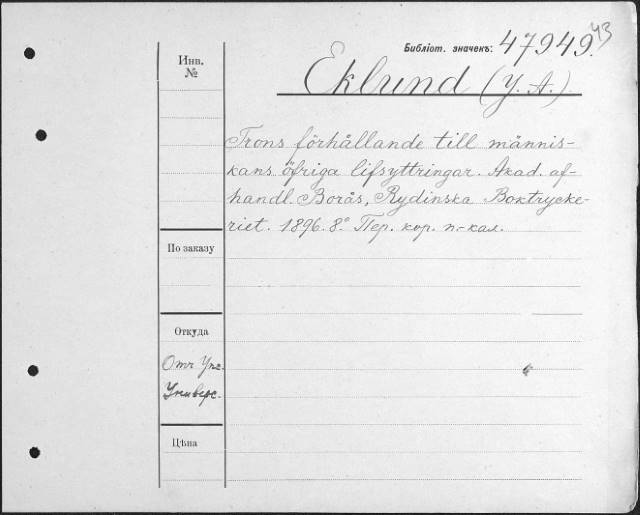 43
Библіот. значекъ: 47949.
Инв.
№
Eklund (Y. A.)
Trons förhållande till männis-
kans öfriga lifsyttringar. Akad. af-
handl. Borås, Rydinska Boktrycke-
riet. 1896. 8° Пер. кор. п.-кал.
По заказу
Откуда
Отъ Упс.
Универс.
Цѣна